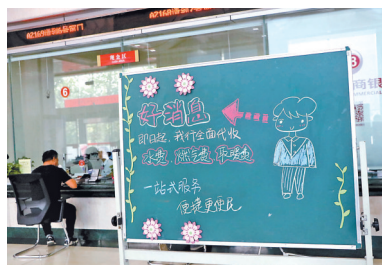 好消息
即日起,我行全面代收
水费 燃气费 取暖费
一站式服务
便捷更便民
6
8
商银